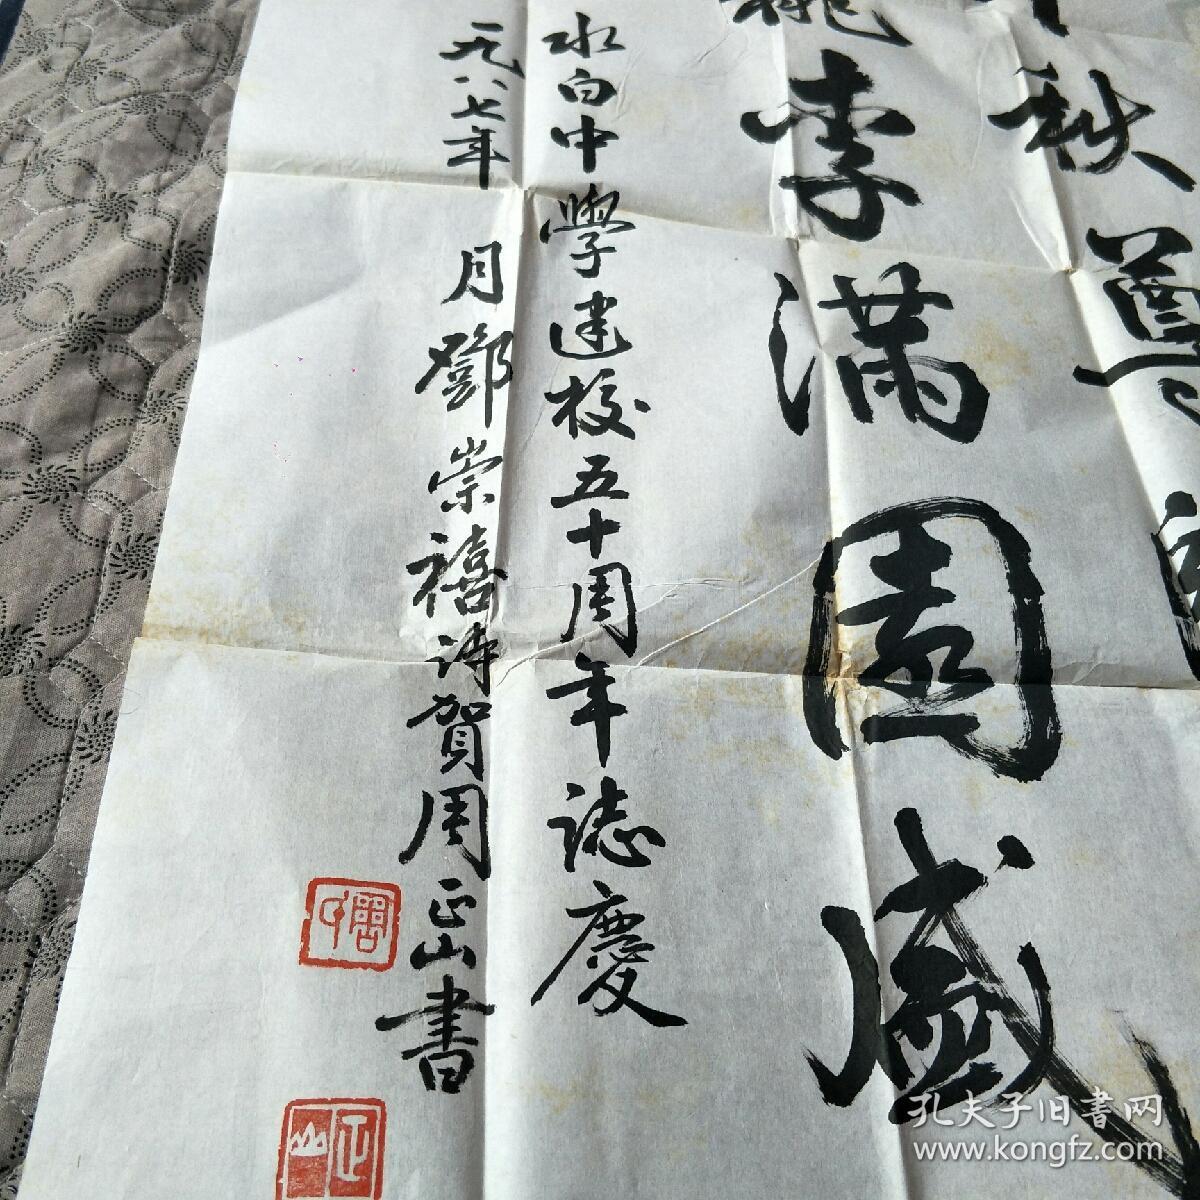 秋尊
桃李满園盛
水白中學建校五十周年誌慶
一九八七年 月鄧崇禧诗賀周正山書
周
正山
孔夫子旧書网
www.kongfz.com